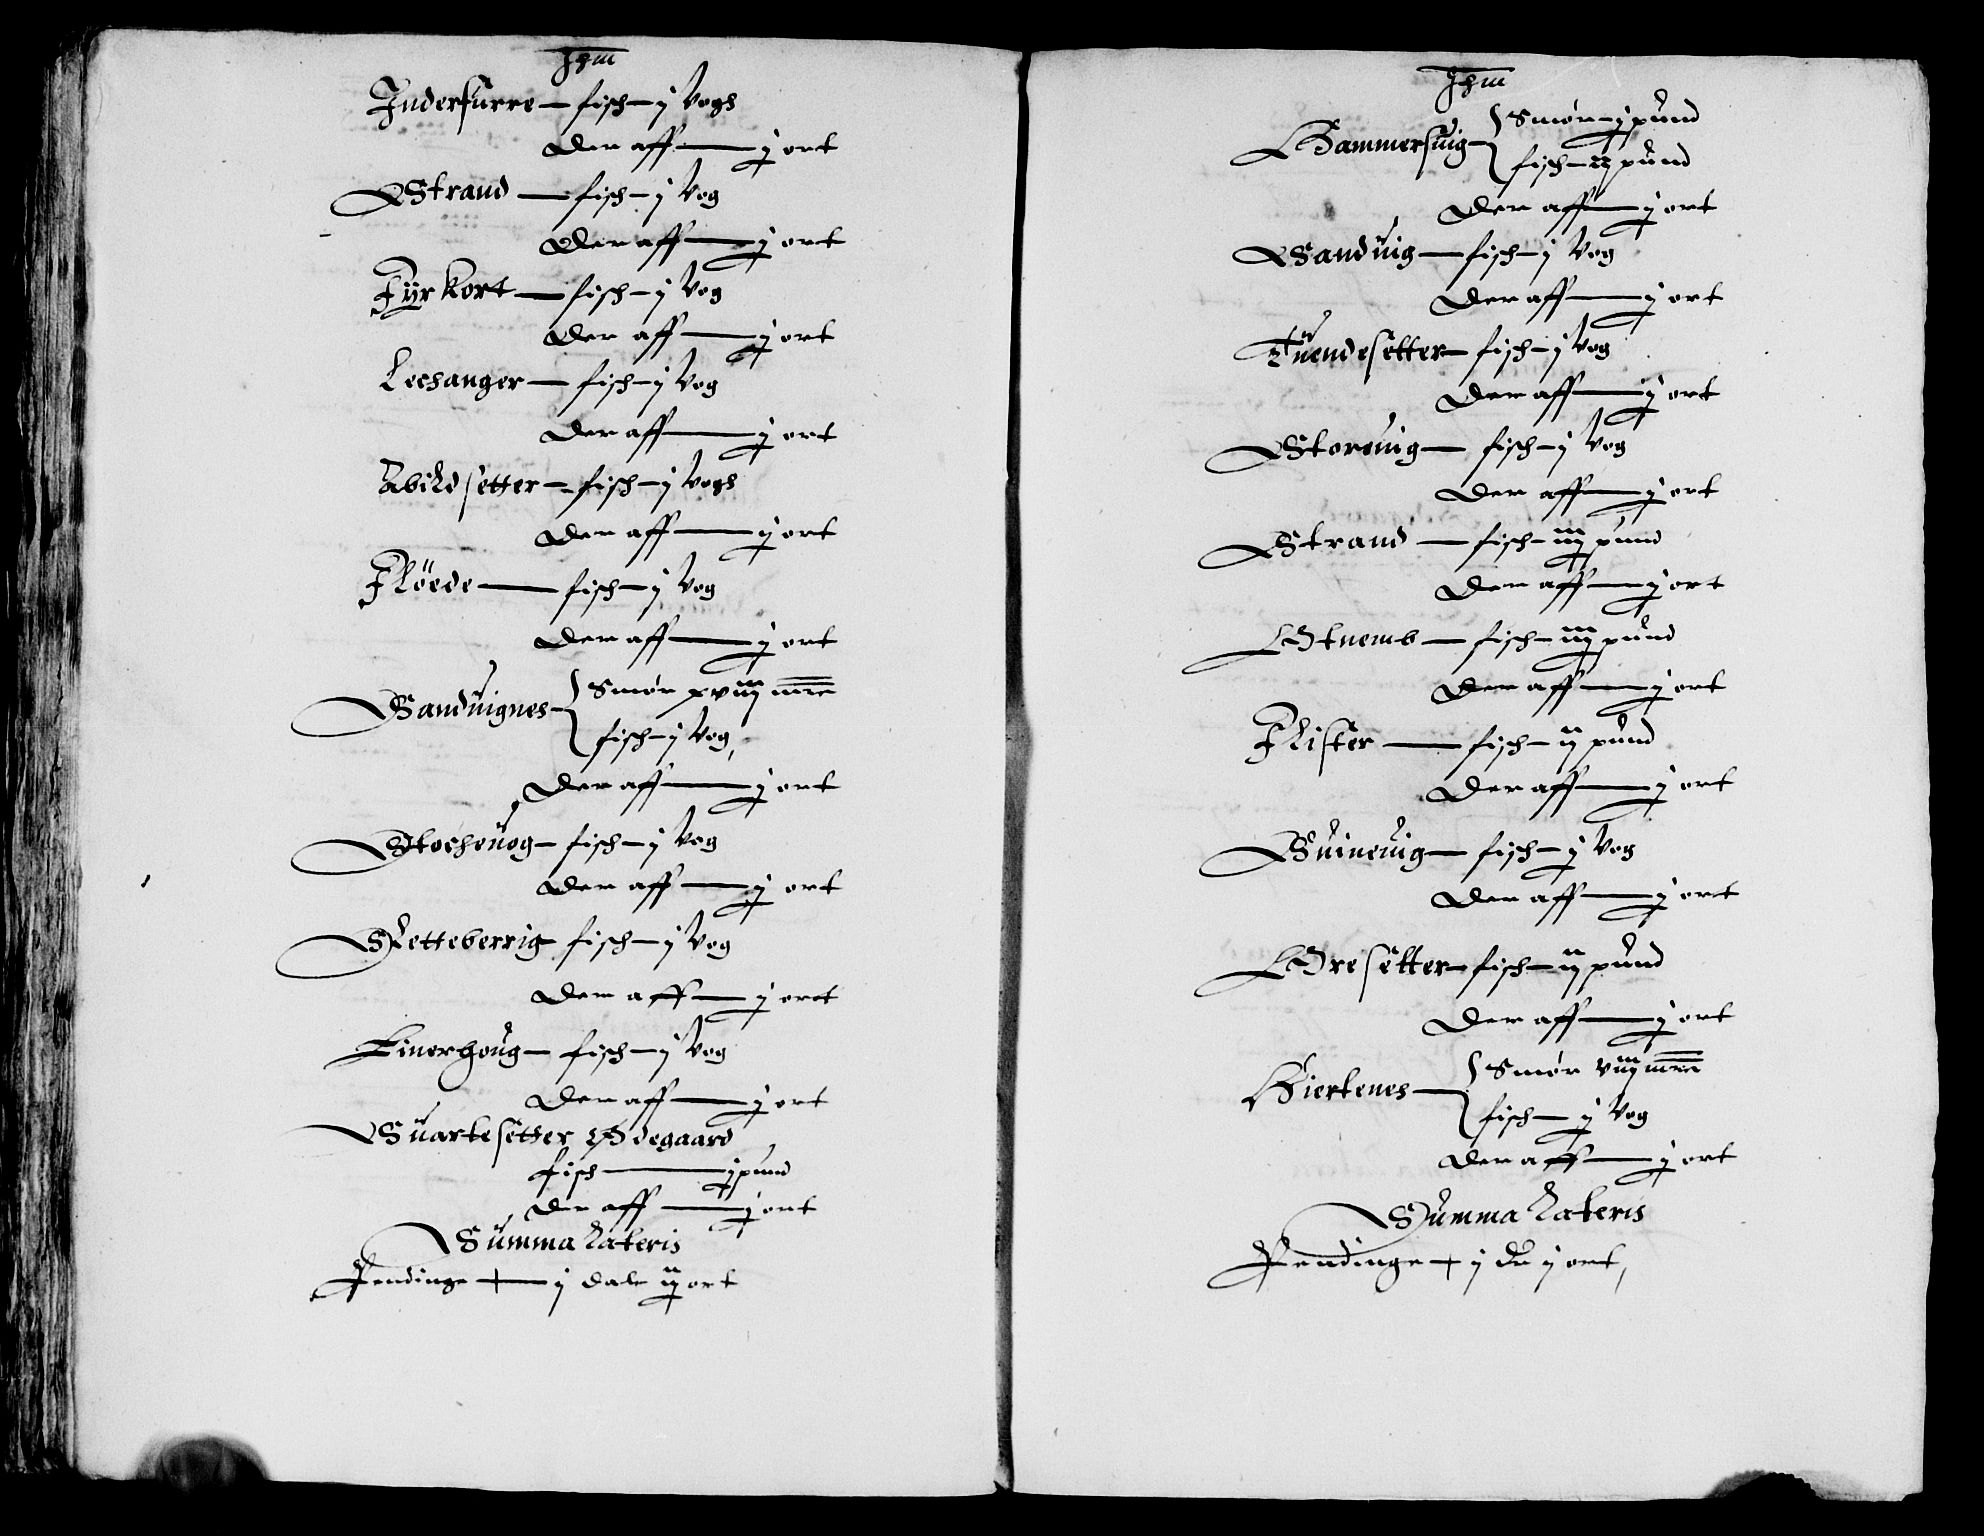 Ihm
Inderfurre — fisch — j Vogh
Der aff — ij ort
Strand — fisch — j Vog
Der aff — ij ort
Fyrkort — fisch — j Vog
Der aff — ij ort
Lechanger — fisch — j Vog
Der aff — ij ort
Abildsetter — fisch — j Vogh
Der aff — ij ort
Flöede — fisch — j Vog
Der aff — ij ort
Sanduignes — Smør xviij mrc
fisch — j Vog,
Der aff — ij ort
Stocheuog — fisch — j Vog
Der aff — ij ort
Sletteberrig — fisch — j Vog
Der aff — ij ort
Einerhoug — fisch — j Vog
Der aff — ij ort
Suartesetter Ødegaard
fisch — ij pund
Der aff — ij ort
Summa Lateris
Pendinge — j dale iij ort
Ihm
Hammersuig — Smør — ij pund
fisch — ij pund
Der aff — ij ort
Sanduig — fisch — j Vog
Der aff — ij ort
Tuendesetter — fisch — j Vog
Der aff — ij ort
Storeuig — fisch — j Vog
Der aff — ij ort
Strand — fisch — iiij pund
Der aff — ij ort
Otnemb — fisch — iiij pund
Der aff — ij ort
Flister — fisch — iij pund
Der aff — ij ort
Suineuig — fisch — ij Vog
Der aff — ij ort
Oresetter — fisch — iij pund
Der aff — ij ort
Hiertenes — Smør viiij mrc
fisch — ij Vog
Der aff — ij ort
Summa Lateris
Pendinge — ij dr ij ort,